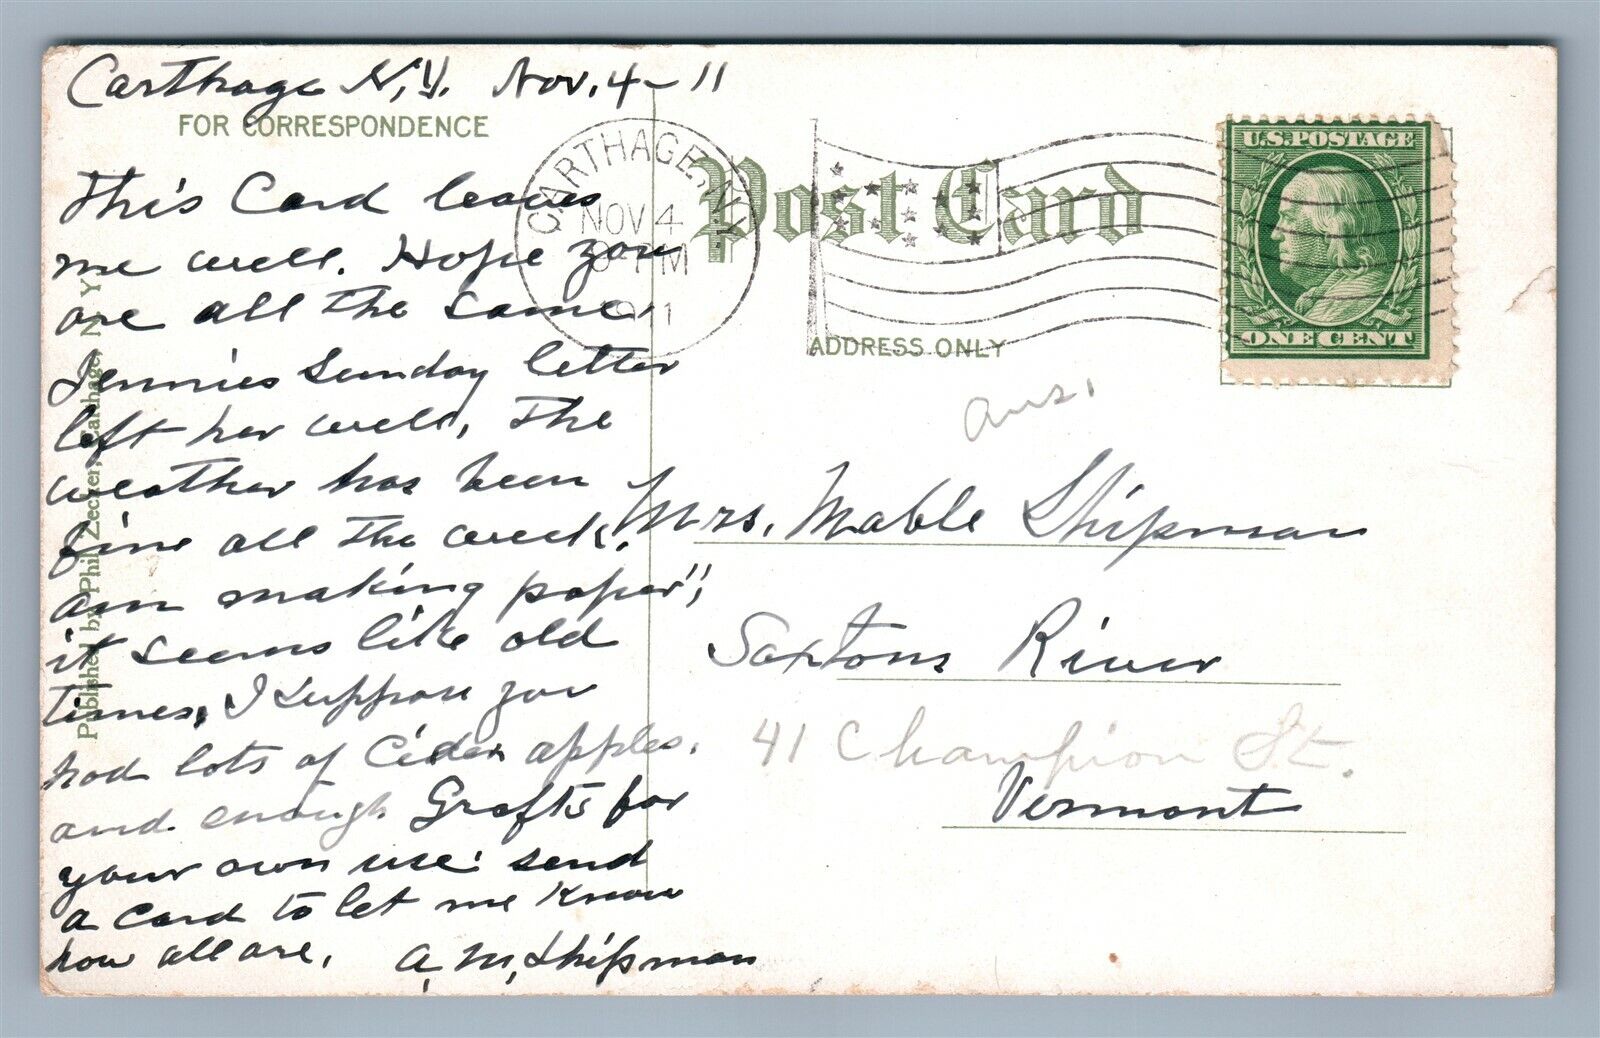 Carthage N.Y. Nov. 4 - 11
FOR CORRESPONDENCE
This Card leaves
me well. Hope you
are all the same.
Jennies Sunday letter
left her well, The
weather has been
fine all the week.
am making paper",
it seems like old
times. I suppose you
had lots of Cider apples.
and enough Grafts for
your own use. send
a card to let me know
how all are. A. M. Shipman
Published by Phil Zecher, Carthage, N. Y.
CARTHAGE, N.Y.
NOV 4
PM
1911
Post Card
ADDRESS ONLY
U.S. POSTAGE
ONE CENT
ans.
Mrs. Mable Shipman
Saxtons River
41 Champion St.
Vermont